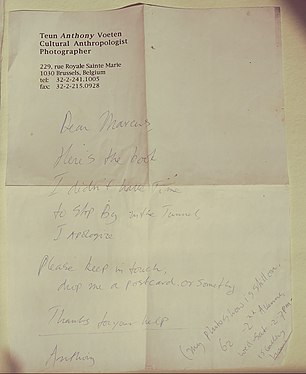 Teun Anthony Voeten
Cultural Anthropologist
Photographer
229, rue Royale Sainte Marie
1030 Brussels, Belgium
tel: 32-2-241.1005
fax: 32-2-215.0928
Dear Marcus,
Here's the book
I didn't have time
to stop by in the Tunnel,
I apologize
Please keep in touch,
drop me a postcard or something
Thanks for your help
Anthony
(my photoshow is still on
62